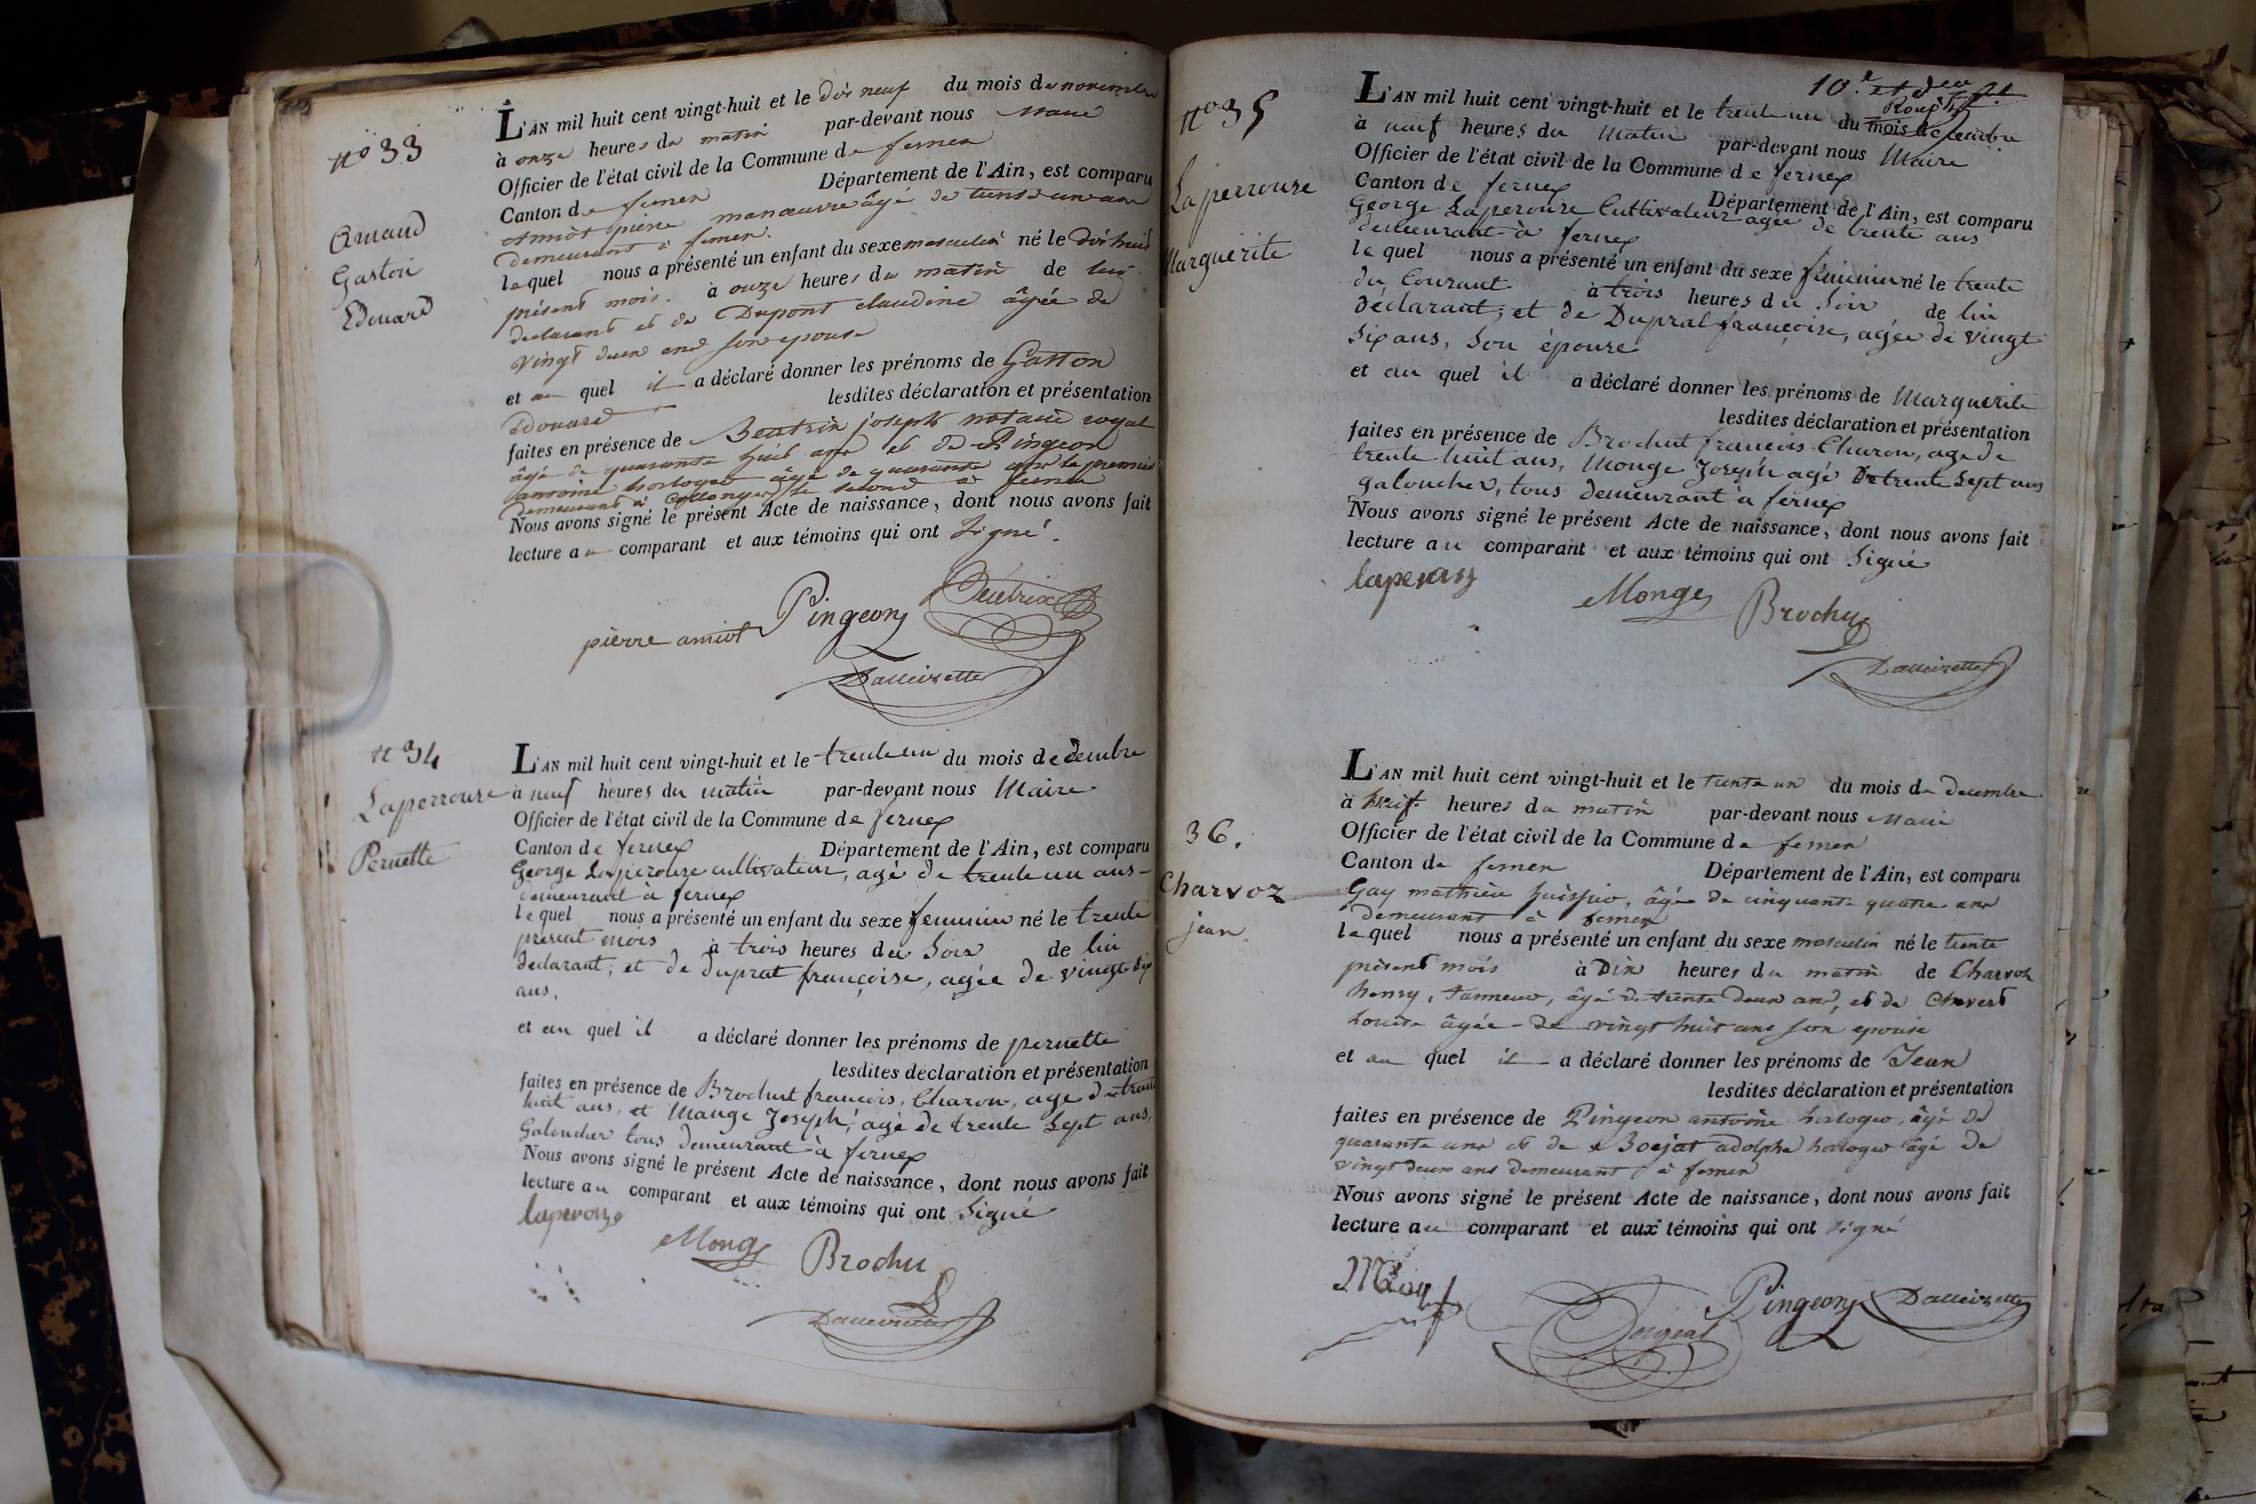 n° 33
Amaud
Gaston
Edouard
L'AN mil huit cent vingt-huit et le dix neuf du mois de novembre
à onze heures du matin par-devant nous Maire
Officier de l'état civil de la Commune de fernex
Canton de fernex Département de l'Ain, est comparu
Amiot pierre manœuvre âgé de trente un ans
demeurant à fernex.
lequel nous a présenté un enfant du sexe masculin né le dix huit
présent mois. à onze heures du matin de lui
declarant et de Dupont claudine âgée de
vingt deux ans son epouse
et au quel il a déclaré donner les prénoms de Gaston
Edouard lesdites déclaration et présentation
faites en présence de Beatrix joseph notaire royal
âgé de quarante huit ans et de Pingeon
antoine horloger âgé de quarante ans le premier
demeurant à Collonges le second à fernex
Nous avons signé le présent Acte de naissance, dont nous avons fait
lecture au comparant et aux témoins qui ont signé.
pierre amiot Pingeon Béatrix
n° 34
Laperrouse
Pernette
L'AN mil huit cent vingt-huit et le trente un du mois de dembre
à neuf heures du matin par-devant nous Maire
Officier de l'état civil de la Commune de fernex
Canton de fernex Département de l'Ain, est comparu
George Laperouse cultivateur, agé de trente un ans
demeurant à fernex
lequel nous a présenté un enfant du sexe feminin né le trente
présent mois à trois heures du Soir de lui
declarant; et de duprat françoise, agée de vingt six
ans,
et au quel il a déclaré donner les prénoms de pernette
lesdites déclaration et présentation
faites en présence de Brochut francois, Charon, age de trente
huit ans, et Mange Joseph, agé de trente Sept ans,
Galoucher tous demeurant à fernex
Nous avons signé le présent Acte de naissance, dont nous avons fait
lecture au comparant et aux témoins qui ont Signé
laperouze
Monge Brochu
n° 35
Laperrouse
Marguerite
10.e et
L'AN mil huit cent vingt-huit et le trente un du mois de
à neuf heures du Matin par-devant nous Maire
Officier de l'état civil de la Commune de fernex
Canton de fernex Département de l'Ain, est comparu
George Laperouse Cultivateur agée de trente ans
demeurant à fernex
lequel nous a présenté un enfant du sexe féminin né le trente
du Courant à trois heures du Soir, de lui
déclarant; et de Duprat françoise, agée de vingt
Six ans, Son épouse
et au quel il a déclaré donner les prénoms de Marguerite
lesdites déclaration et présentation
faites en présence de Brochut francois Charon, age de
trente huit ans, Monge Joseph agé De trente Sept ans
galoucher, tous demeurant à fernex
Nous avons signé le présent Acte de naissance, dont nous avons fait
lecture au comparant et aux témoins qui ont Signé
laperouz
Monge Brochu
36.
Charvoz
jean
L'AN mil huit cent vingt-huit et le trente un du mois de decembre
à huit heures du matin par-devant nous Maire
Officier de l'état civil de la Commune de fernex
Canton de fernex Département de l'Ain, est comparu
Gay mathieu huissier, âgé de cinquante quatre ans
demeurant à fernex
lequel nous a présenté un enfant du sexe masculin né le trente
présent mois à Dix heures du matin de Charvoz
henry, tanneur, âgé de trente deux ans, et de Chevert
Louise âgée de vingt huit ans son epouse
et au quel il a déclaré donner les prénoms de Jean
lesdites déclaration et présentation
faites en présence de Pingeon antoine horloger, âgé de
quarante ans et de Boejat adolphe horloger âgé de
vingt deux ans demeurant à fernex
Nous avons signé le présent Acte de naissance, dont nous avons fait
lecture au comparant et aux témoins qui ont signé
Pingeon